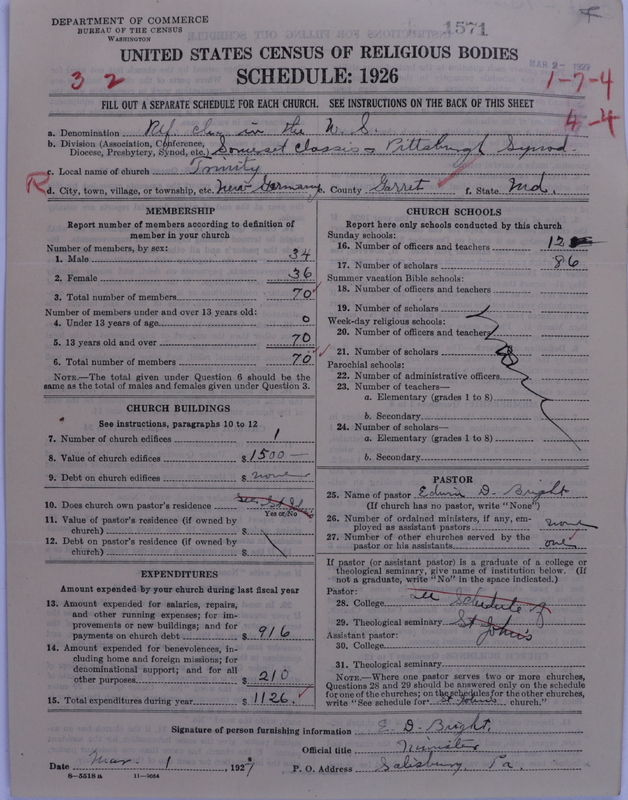 DEPARTMENT OF COMMERCE
BUREAU OF THE CENSUS
WASHINGTON
1571
MAR 2- 1927
UNITED STATES CENSUS OF RELIGIOUS BODIES
SCHEDULE: 1926
3 2
1-7-4
4-4
FILL OUT A SEPARATE SCHEDULE FOR EACH CHURCH. SEE INSTRUCTIONS ON THE BACK OF THIS SHEET
a. Denomination Ref. Ch. in the U. S.
b. Division (Association, Conference, Diocese, Presbytery, Synod, etc.) Somerset Classis - Pittsburgh Synod
c. Local name of church Trinity
R
d. City, town, village, or township, etc. New Germany e. County Garret f. State Md.
MEMBERSHIP
Report number of members according to definition of
member in your church
Number of members, by sex:
1. Male 34
2. Female 36
3. Total number of members 70
Number of members under and over 13 years old:
4. Under 13 years of age 0
5. 13 years old and over 70
6. Total number of members 70
NOTE.—The total given under Question 6 should be the
same as the total of males and females given under Question 3.
CHURCH BUILDINGS
See instructions, paragraphs 10 to 12
7. Number of church edifices 1
8. Value of church edifices $ 1500 —
9. Debt on church edifices $ none
10. Does church own pastor's residence See St John's
Yes or No
11. Value of pastor's residence (if owned by
church) $
12. Debt on pastor's residence (if owned by
church) $
EXPENDITURES
Amount expended by your church during last fiscal year
13. Amount expended for salaries, repairs,
and other running expenses; for im-
provements or new buildings; and for
payments on church debt $ 916
14. Amount expended for benevolences, in-
cluding home and foreign missions; for
denominational support; and for all
other purposes $ 210
15. Total expenditures during year $ 1126.
CHURCH SCHOOLS
Report here only schools conducted by this church
Sunday schools:
16. Number of officers and teachers 12
17. Number of scholars 86
Summer vacation Bible schools:
18. Number of officers and teachers
19. Number of scholars
Week-day religious schools:
20. Number of officers and teachers
21. Number of scholars
Parochial schools:
22. Number of administrative officers
23. Number of teachers—
a. Elementary (grades 1 to 8)
b. Secondary
24. Number of scholars—
a. Elementary (grades 1 to 8)
b. Secondary
PASTOR
25. Name of pastor Edwin D. Bright
(If church has no pastor, write "None")
26. Number of ordained ministers, if any, em-
ployed as assistant pastors none
27. Number of other churches served by the
pastor or his assistants one
If pastor (or assistant pastor) is a graduate of a college or
theological seminary, give name of institution below. (If
not a graduate, write "No" in the space indicated.)
Pastor:
28. College see Schedule of
29. Theological seminary St John's
Assistant pastor:
30. College
31. Theological seminary
NOTE.—Where one pastor serves two or more churches,
Questions 28 and 29 should be answered only on the schedule
for one of the churches; on the schedules for the other churches,
write "See schedule for St Johns church."
Signature of person furnishing information E. D. Bright
Official title Minister
Date Mar. 1, 1927
P. O. Address Salisbury, Pa.
8-5518 a 11-9084